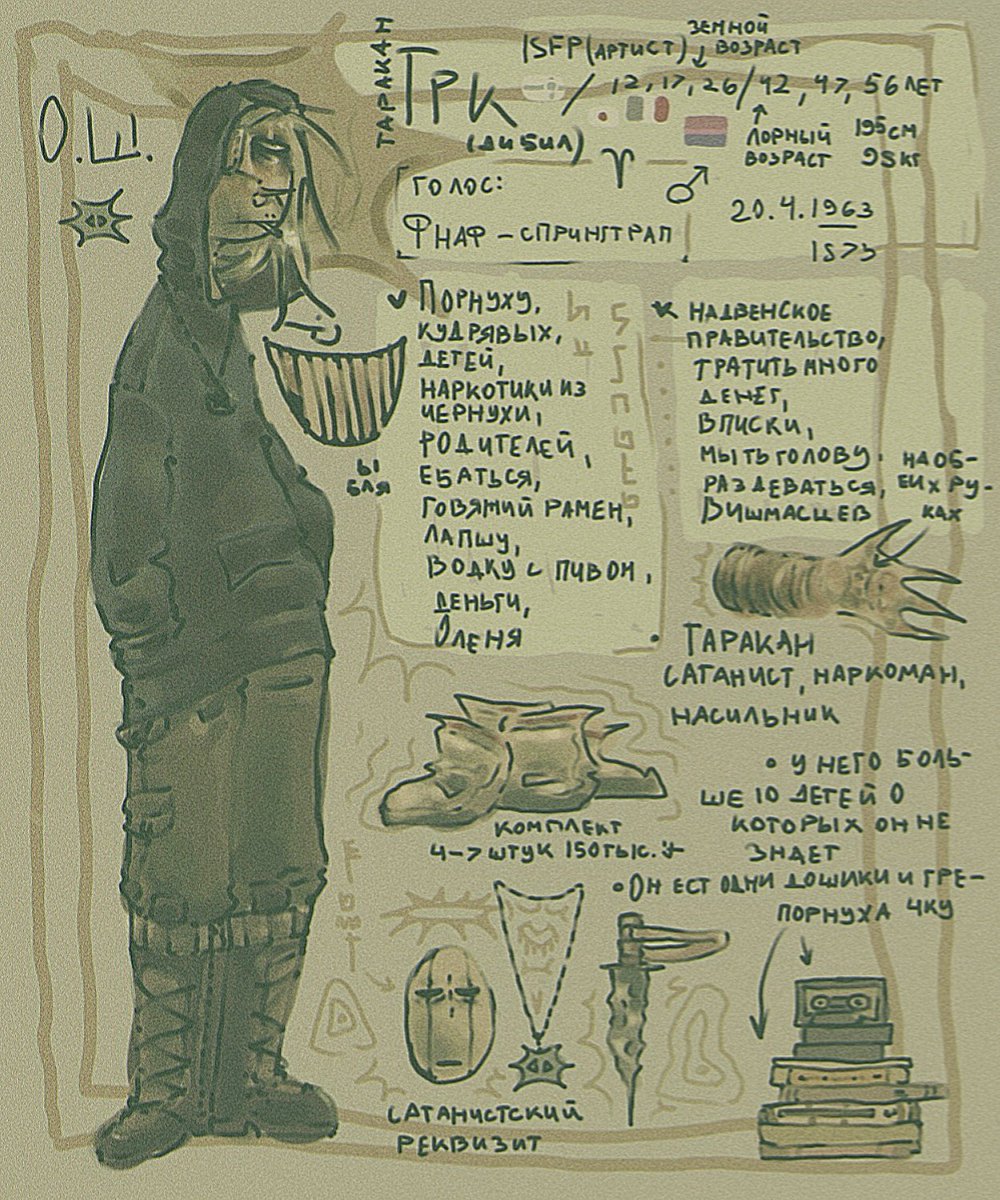 О.Е.
ТАРАКАН
ТРК
(ДИБИЛ)
ISFP (АРТИСТ)
ЗЕМНОЙ
ВОЗРАСТ
/ 12, 17, 26 / 42, 47, 56 ЛЕТ
ЛОРНЫЙ
ВОЗРАСТ
195 СМ
95 КГ
♈ ♂
ГОЛОС:
ФНАФ – СПРИНГТРАП
20.4.1963
1573
ПОРНУХУ,
КУДРЯВЫХ,
ДЕТЕЙ,
НАРКОТИКИ ИЗ
ЧЕРНУХИ,
РОДИТЕЛЕЙ,
ЕБАТЬСЯ,
ГОВЯЖИЙ РАМЕН,
ЛАПШУ,
ВОДКУ С ПИВОМ,
ДЕНЬГИ,
ОЛЕНЯ
НАДВЕНСКОЕ
ПРАВИТЕЛЬСТВО,
ТРАТИТЬ МНОГО
ДЕНЕГ,
ВПИСКИ,
МЫТЬ ГОЛОВУ
РАЗДЕВАТЬСЯ,
ВИШМАСЦЕВ
НА ОБ-
ЕИХ РУ-
КАХ
Ы
БЛЯ
ТАРАКАН
САТАНИСТ, НАРКОМАН,
НАСИЛЬНИК
• У НЕГО БОЛЬ-
ШЕ 10 ДЕТЕЙ О
КОТОРЫХ ОН НЕ
ЗНАЕТ
• ОН ЕСТ ОДНИ ДОШИКИ И ГРЕ-
ЧКУ
ПОРНУХА
КОМПЛЕКТ
4–7 ШТУК 150 ТЫС.
САТАНИСТСКИЙ
РЕКВИЗИТ